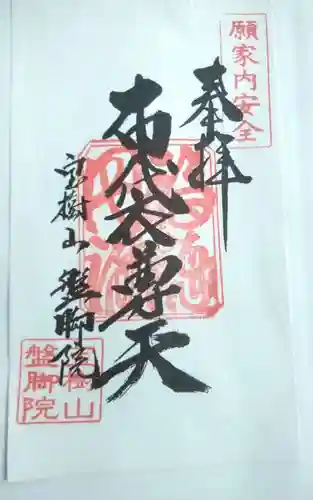 願家内安全
奉拝
布袋尊天
宝樹山 盤脚院
樹山
盤脚院